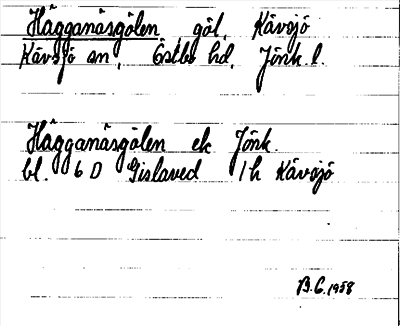 Hägganäsgölen, göl, Kävsjö
Kävsjö sn, Östbo hd, Jönk. l.
Hägganäsgölen ek Jönk.
bl. 6 D Gislaved 1 h Kävsjö
B.G. 1958